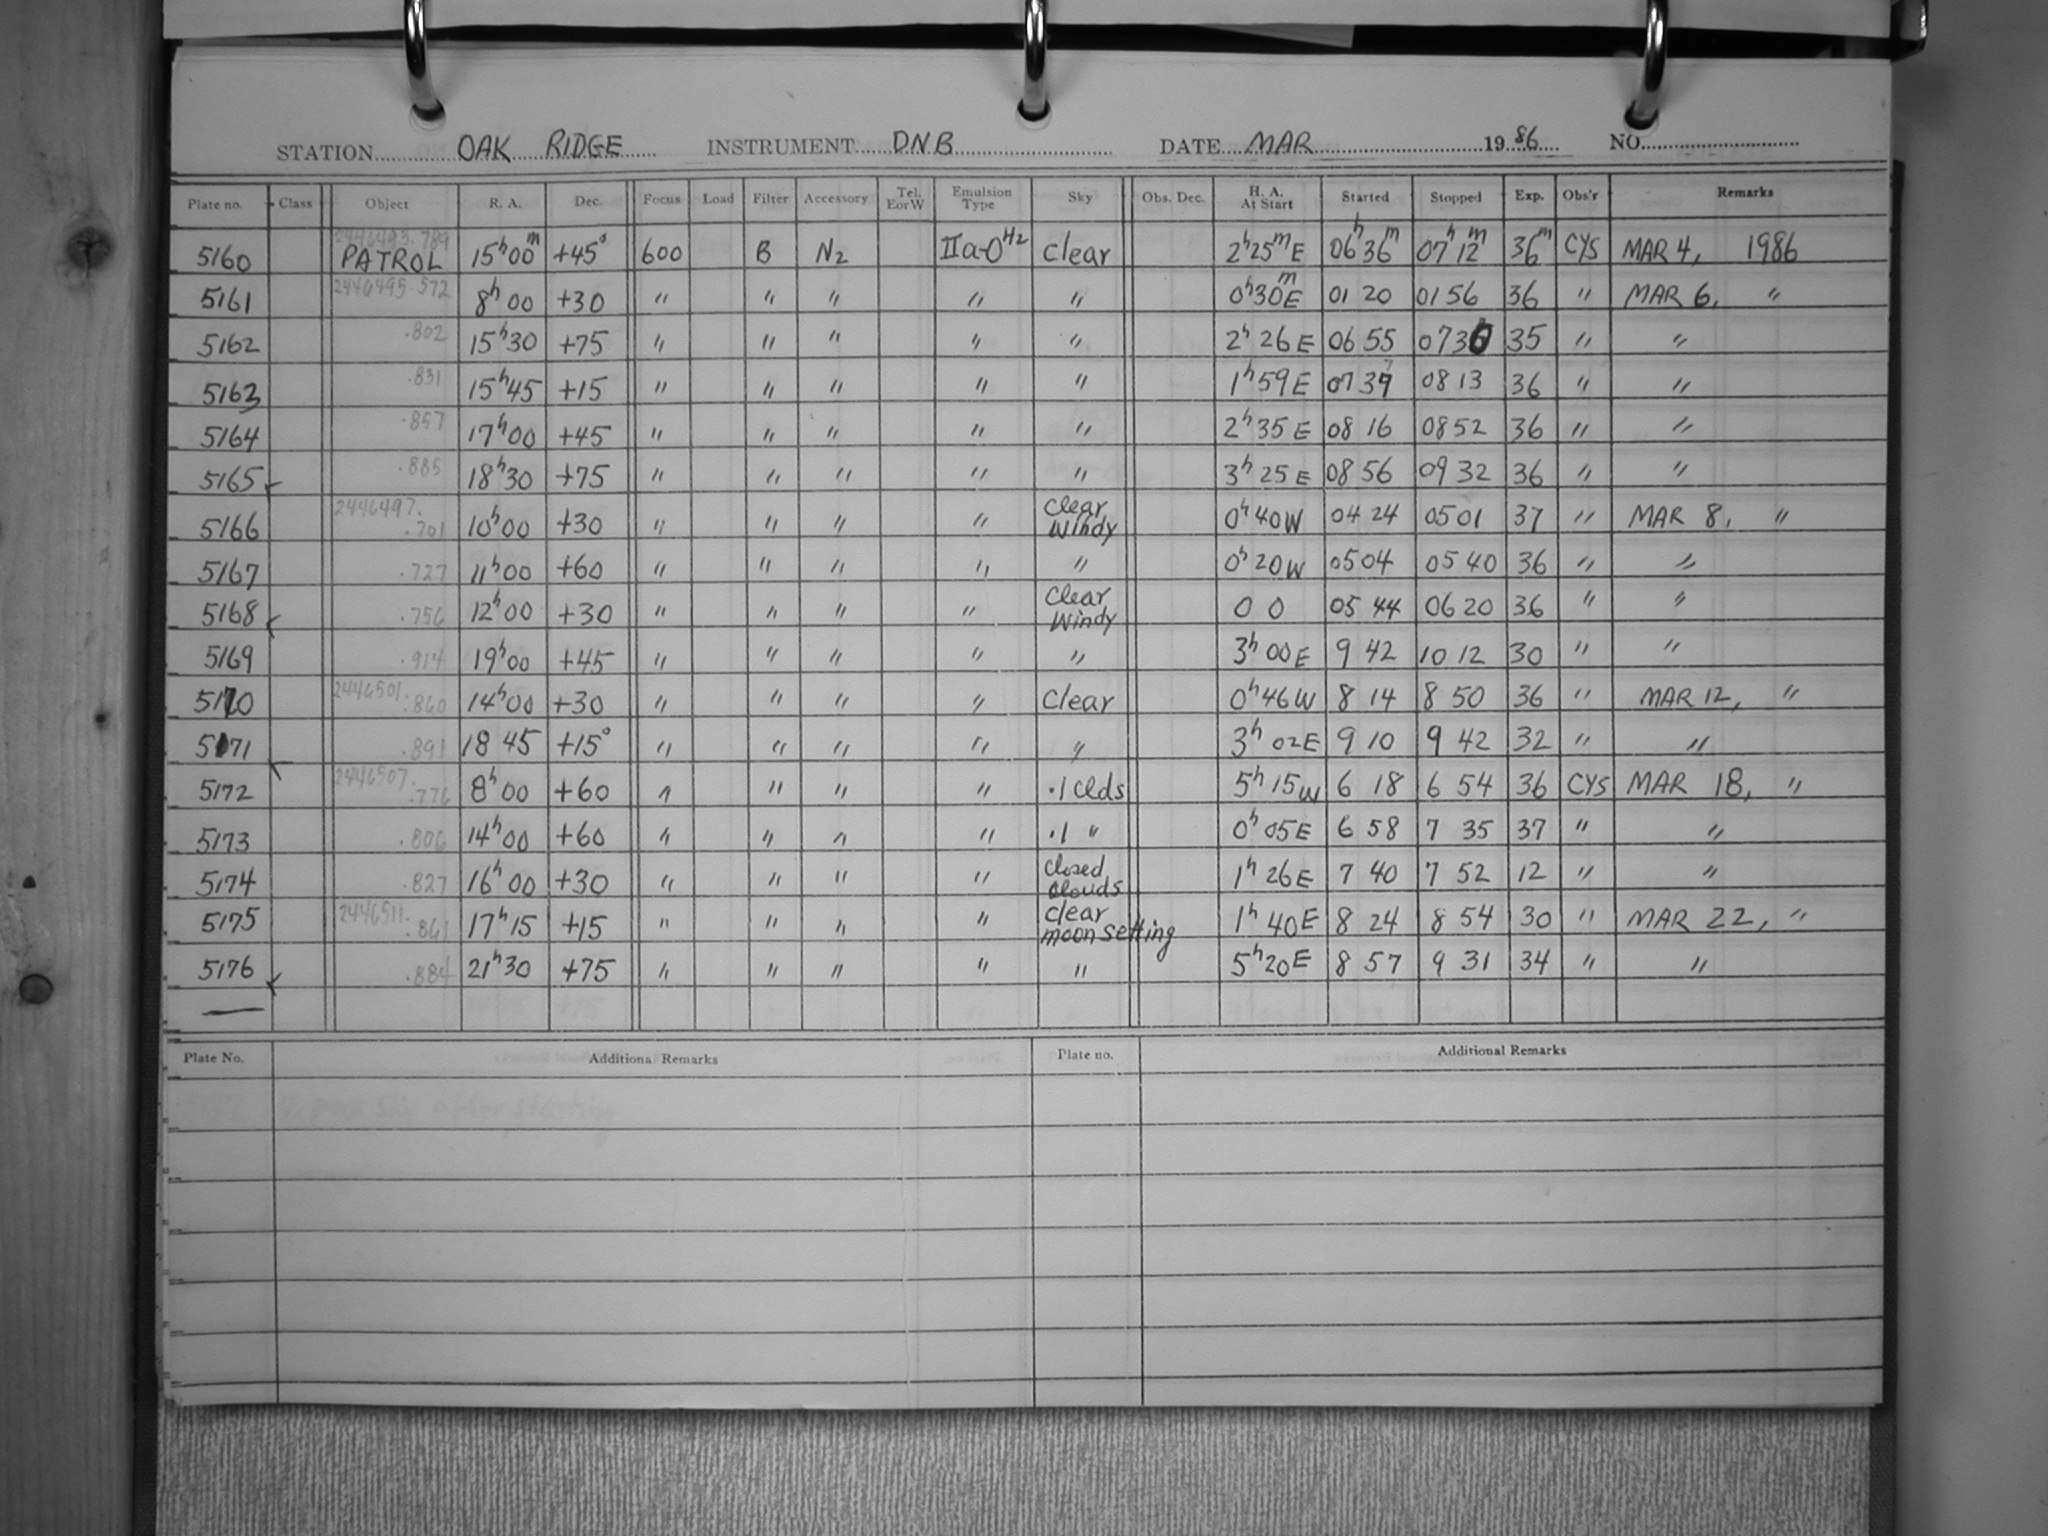 STATION OAK RIDGE INSTRUMENT DNB DATE MAR 19 86 NO.
Plate no. Class Object R. A. Dec. Focus Load Filter Accessory Tel. EorW Emulsion Type Sky Obs. Dec. H. A. At Start Started Stopped Exp. Obs'r Remarks
5160 2446493.789 PATROL 15h00m +45° 600 B N2 IIa-O H2 clear 2h25mE 06h36m 07h12m 36m CYS MAR 4, 1986
5161 2446495.572 8h00 +30 " " " " " 0h30mE 01 20 01 56 36 " MAR 6, "
5162 .802 15h30 +75 " " " " " 2h26E 06 55 0730 35 " "
5163 .831 15h45 +15 " " " " " 1h59E 07 37 08 13 36 " "
5164 .857 17h00 +45 " " " " " 2h35E 08 16 0852 36 " "
5165 .885 18h30 +75 " " " " " 3h25E 08 56 09 32 36 " "
5166 2446497. .701 10h00 +30 " " " " clear windy 0h40W 04 24 0501 37 " MAR 8, "
5167 .727 11h00 +60 " " " " " 0h20W 0504 05 40 36 " "
5168 .756 12h00 +30 " " " " clear windy 0 0 05 44 06 20 36 " "
5169 .914 19h00 +45 " " " " " 3h00E 9 42 10 12 30 " "
5170 2446501. .860 14h00 +30 " " " " clear 0h46W 8 14 8 50 36 " MAR 12, "
5171 .891 18 45 +15° " " " " " 3h02E 9 10 9 42 32 " "
5172 2446507. .776 8h00 +60 " " " " .1 clds 5h15W 6 18 6 54 36 CYS MAR 18, "
5173 .806 14h00 +60 " " " " .1 " 0h05E 6 58 7 35 37 " "
5174 .827 16h00 +30 " " " " closed clouds 1h26E 7 40 7 52 12 " "
5175 2446511. .861 17h15 +15 " " " " clear moon setting 1h40E 8 24 8 54 30 " MAR 22, "
5176 .884 21h30 +75 " " " " " 5h20E 8 57 9 31 34 " "
Plate No. Additional Remarks Plate no. Additional Remarks